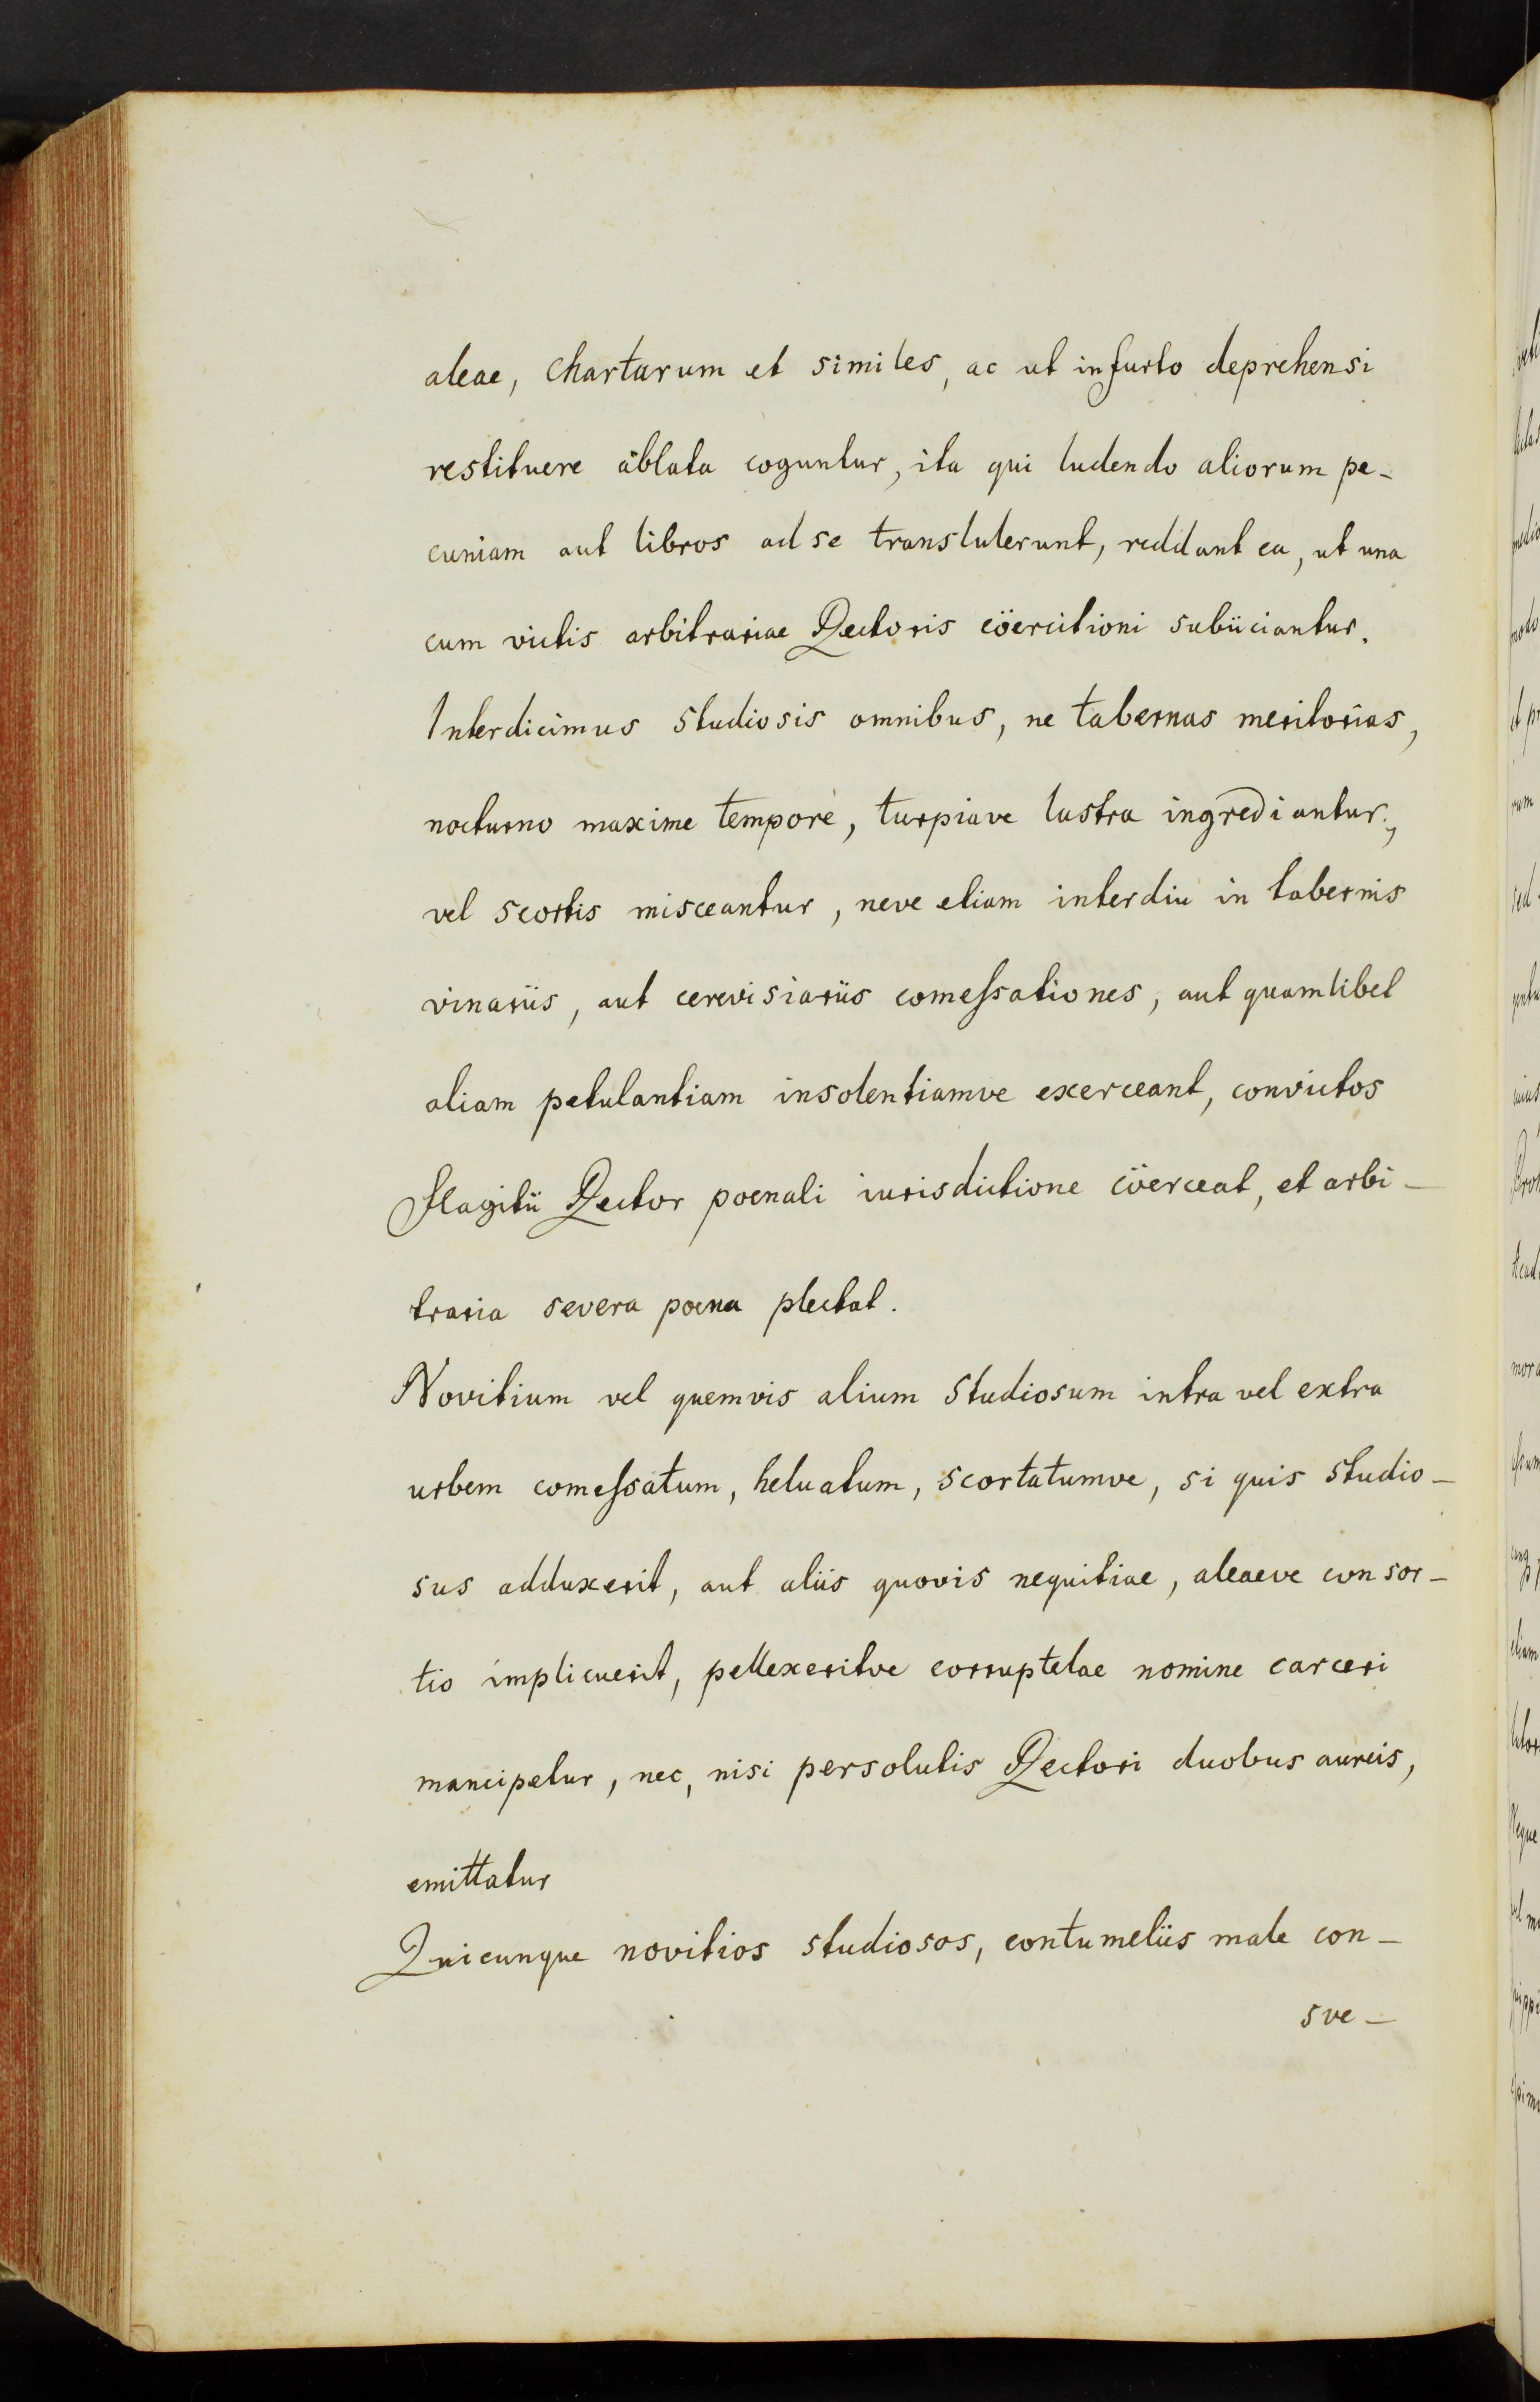 aleae, chartarum et similes, ac ut in furto deprehensi
restituere ablata coguntur, ita qui ludendo aliorum pe-
cuniam aut libros ad se transtulerunt, reddant ea, ut una
cum victis arbitrariae Rectoris cöercitioni subiiciantur.
Interdicimus studiosis omnibus, ne tabernas meritorias,
nocturno maxime tempore, turpiave lustra ingrediantur,
vel scortis misceantur, neve etiam interdiu in tabernis
vinariis, aut cerevisiariis comeſsationes, aut quamlibet
aliam petulantiam insolentiamve exerceant, convictos
flagitii Rector poenali iurisdictione cöerceat, et arbi-
traria severa poena plectat.
Novitium vel quemvis alium studiosum intra vel extra
urbem comeſsatum, heluatum, scortatumve, si quis studio-
sus adduxerit, aut aliis quovis nequitiae, aleaeve consor-
tio implicuerit, pellexeritve corruptelae nomine carceri
mancipetur, nec, nisi persolutis Rectori duobus aureis,
emittatur
Quicunque novitios studiosos, contumeliis male con-
sve-